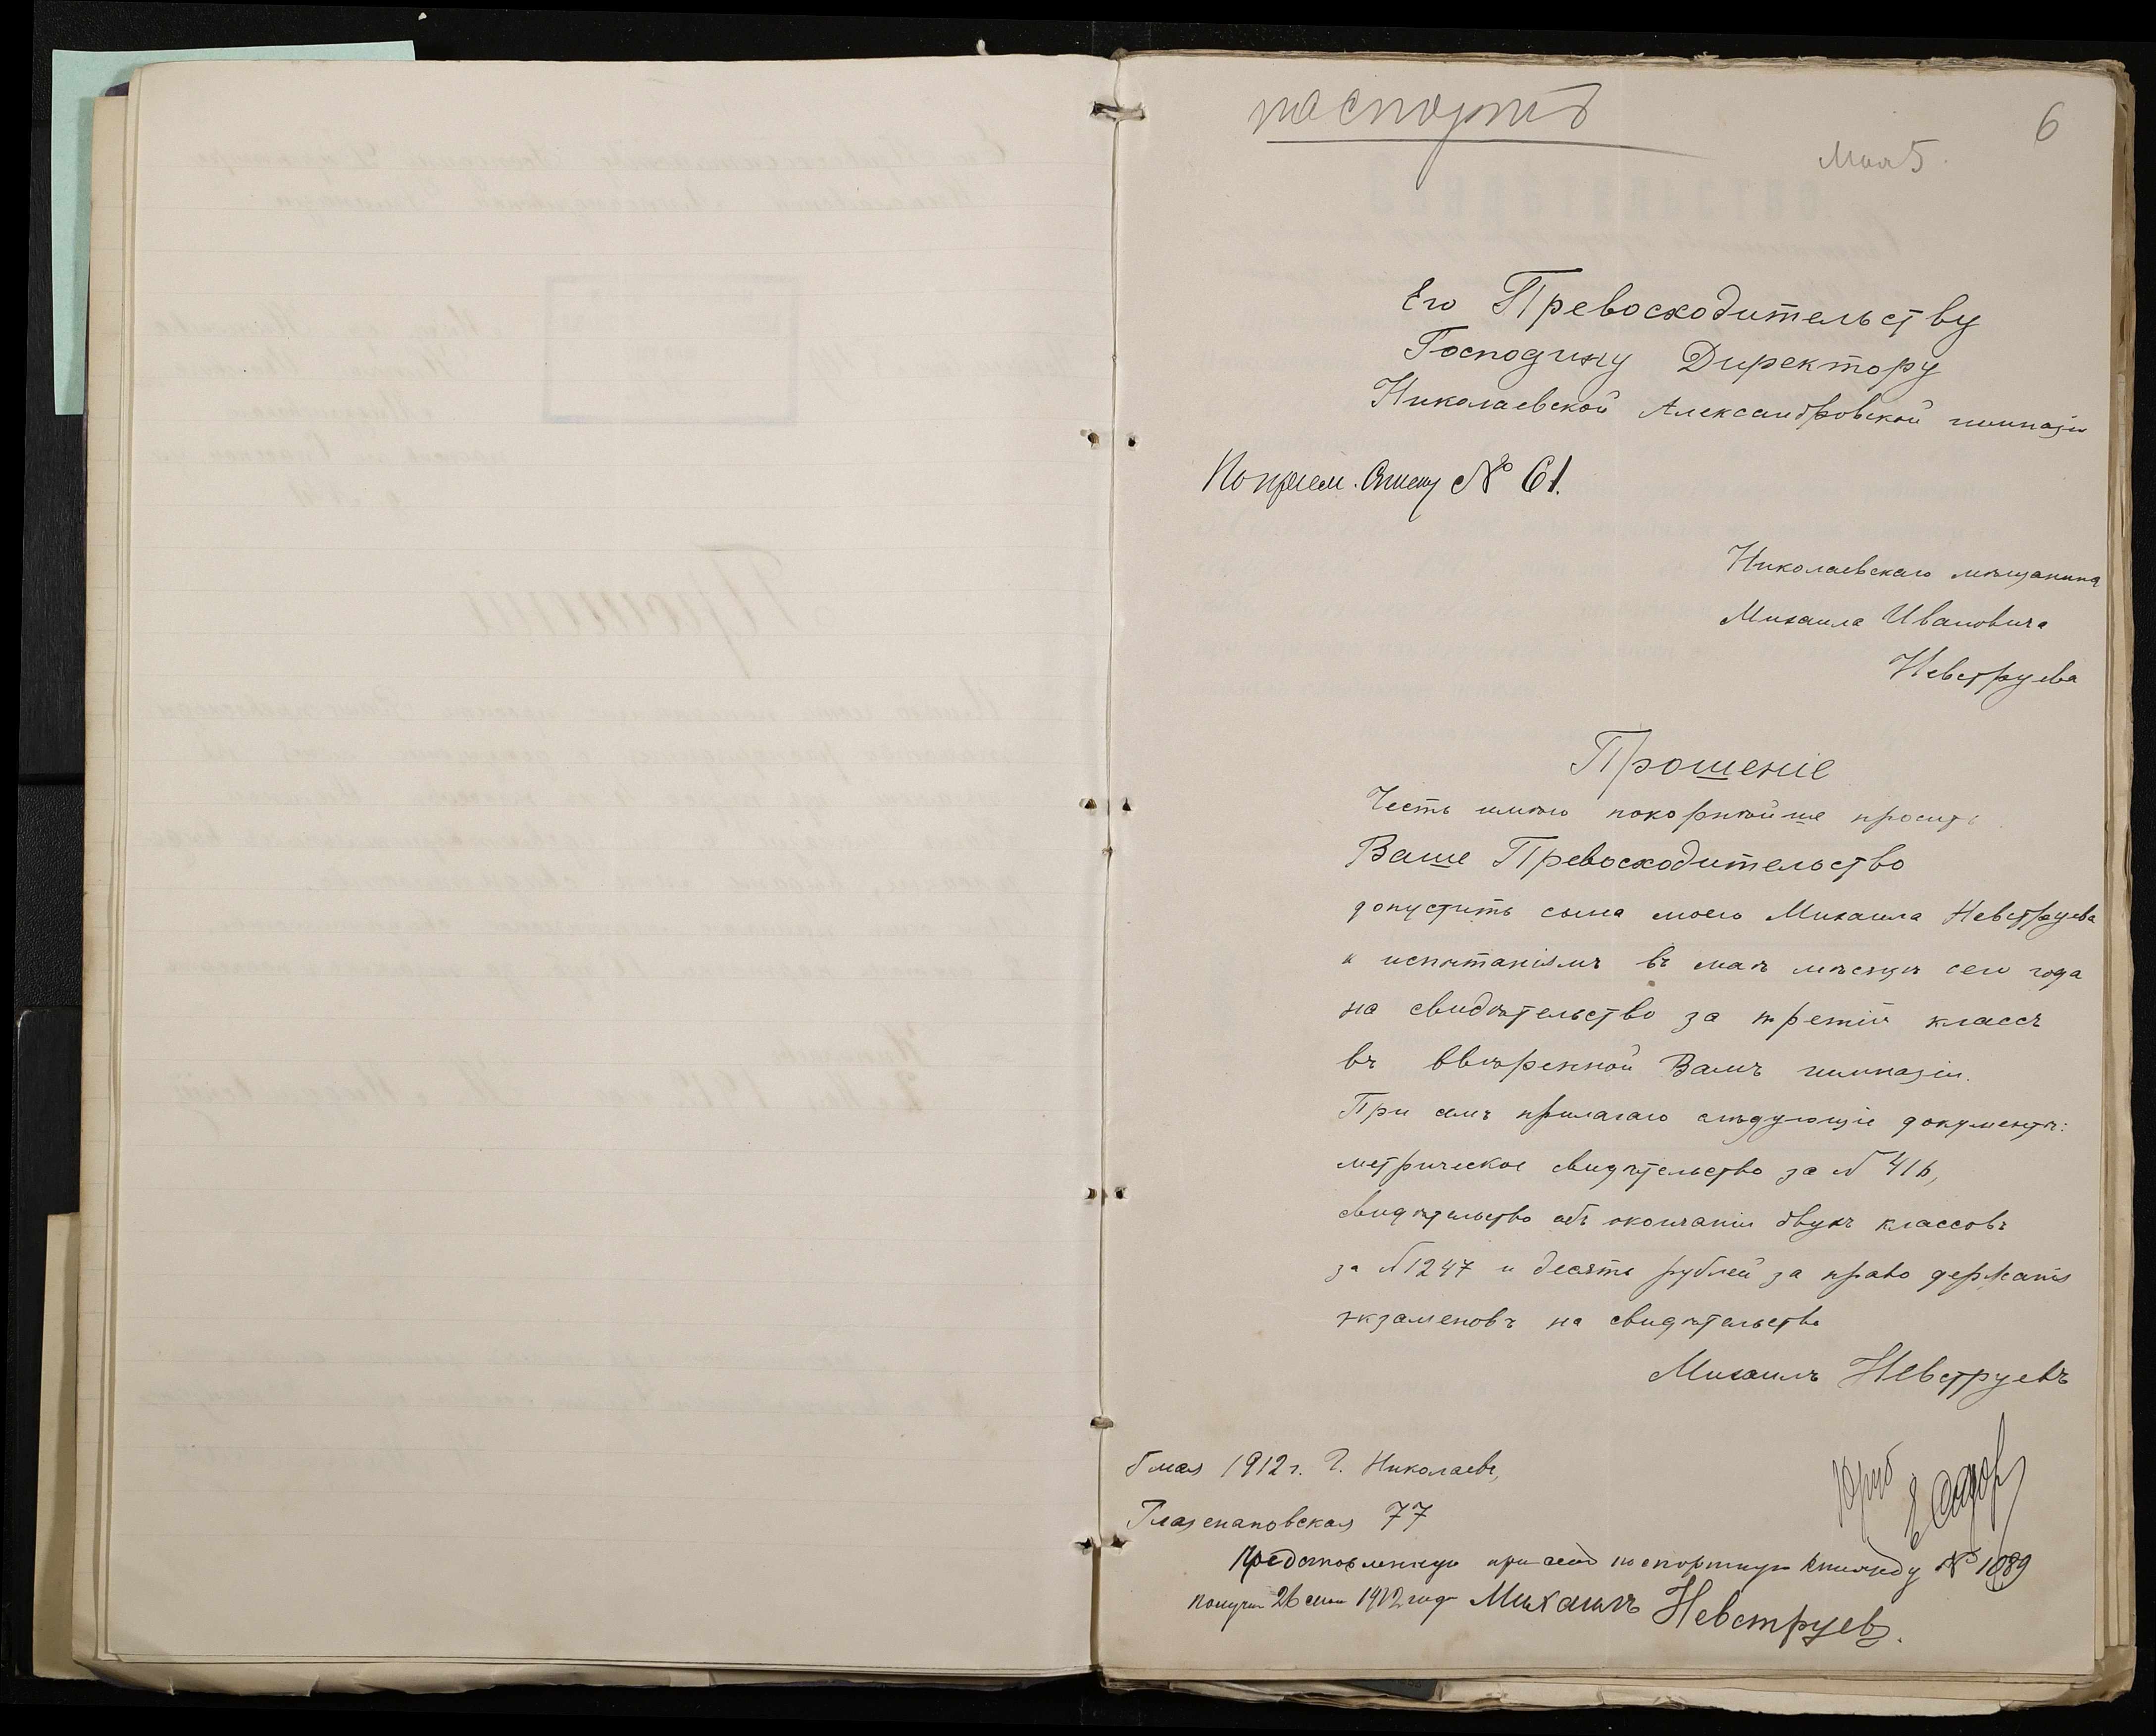 паспортъ
6
Мая 5.
Его Превосходительству
Господину Директору
Николаевской Александровской гимназіи
По прием. списку № 61.
Николаевскаго мѣщанина
Михаила Ивановича
Невструева
Прошеніе
Честь имѣю покорнѣйше просить
Ваше Превосходительство
допустить сына моего Михаила Невструева
к испытаніямъ въ маѣ мѣсяцѣ сего года
на свидѣтельство за третій классъ
въ ввѣренной Вамъ гимназіи.
При семъ прилагаю слѣдующіе документы:
метрическое свидѣтельство за №
свидѣтельство объ окончаніи двухъ классовъ
за № 1247 и десять рублей за право держанія
экзаменовъ на свидѣтельство
Михаилъ Невструевъ
5 мая 1912 г. Г. Николаевъ,
Глазенаповская 77
Представленную при семъ паспортную книжку № 1089
получил 26 мая 1912 года Михаилъ Невструевъ.